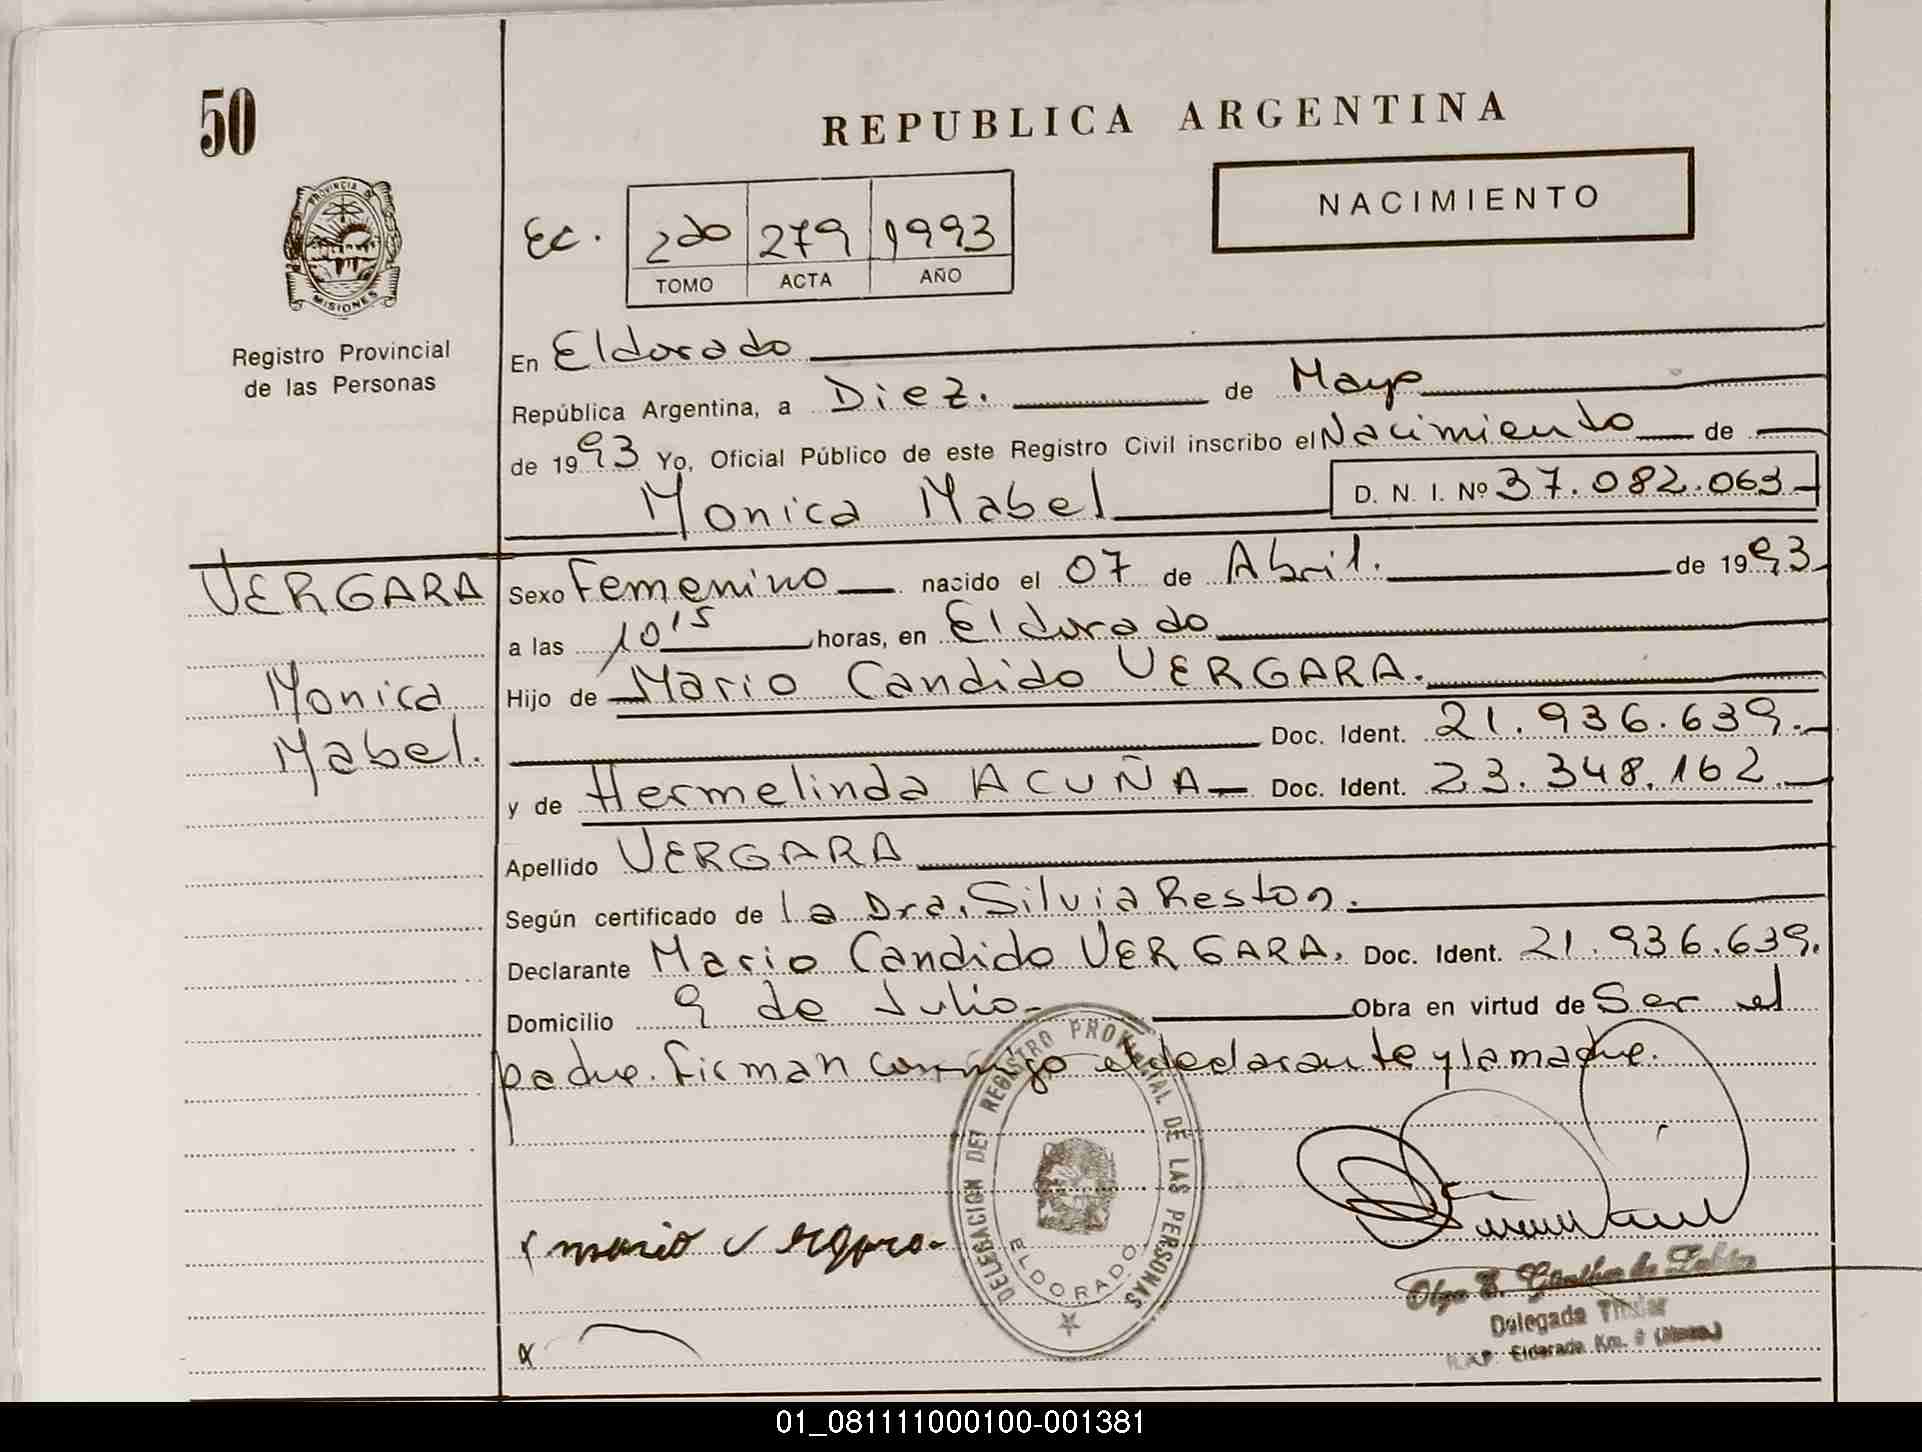 50
REPUBLICA ARGENTINA
NACIMIENTO
PROVINCIA DE
MISIONES
Registro Provincial
de las Personas
Ec. 2do 279 1993
TOMO ACTA AÑO
En Eldorado
República Argentina, a Diez. de Mayo
de 1993 Yo, Oficial Público de este Registro Civil inscribo el Nacimiento de
Monica Mabel D. N. I. Nº 37.082.063
VERGARA
Monica
Mabel.
Sexo Femenino nacido el 07 de Abril. de 1993
a las 10 15 horas, en Eldorado
Hijo de Mario Candido VERGARA.
Doc. Ident. 21.936.639.
y de Hermelinda ACUÑA Doc. Ident. 23.348.162
Apellido VERGARA
Según certificado de la Dra. Silvia Reston.
Declarante Mario Candido VERGARA. Doc. Ident. 21.936.639.
Domicilio 9 de Julio Obra en virtud de Ser el
padre. Firman conmigo el declarante y la madre.
DELEGACION DEL REGISTRO PROVINCIAL DE LAS PERSONAS
ELDORADO
mario Vergara
Olga E. Günther de
Delegada Titular
Eldorado Km. 9
01_081111000100-001381